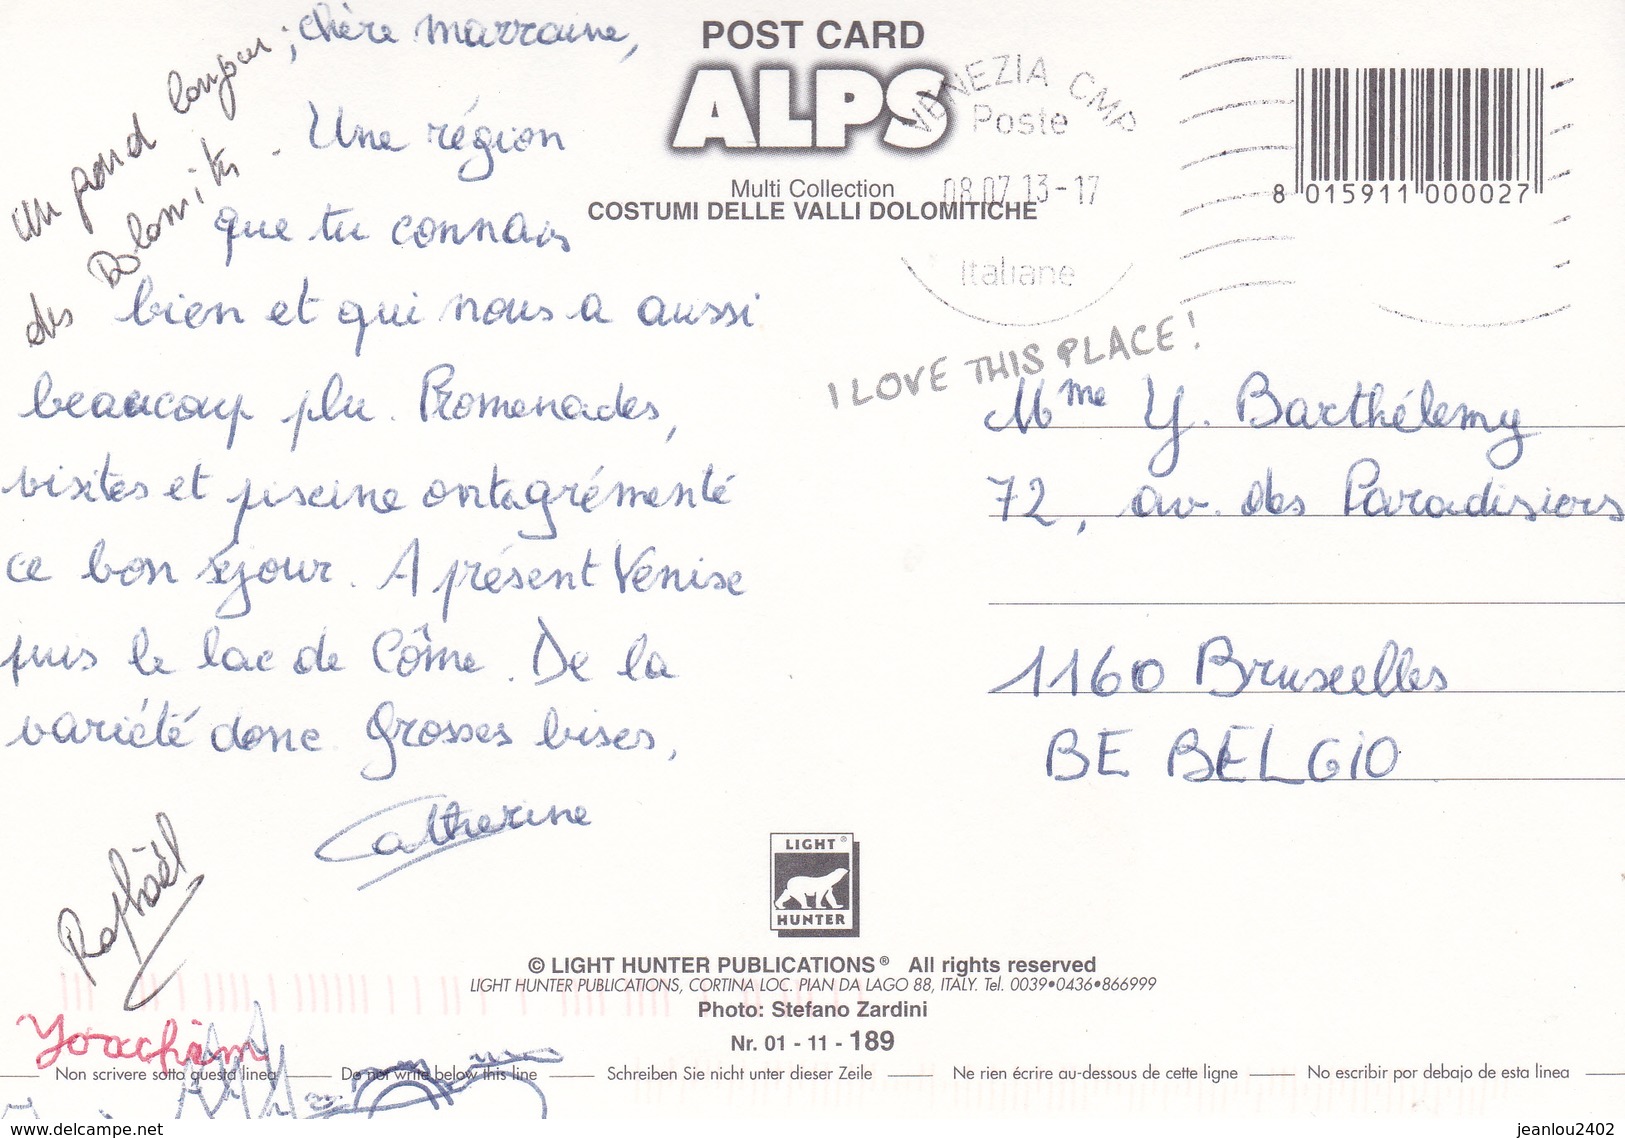 un grand bonjour
des Dolomites.
; chère marraine,
Une région
que tu connais
bien et qui nous a aussi
beaucoup plu. Promenades,
visites et piscine ont agrémenté
ce bon séjour. A présent Venise
puis le lac de Côme. De la
variété donc. Grosses bises,
Catherine
Raphaël
Yoachim
POST CARD
ALPS
Multi Collection
COSTUMI DELLE VALLI DOLOMITICHE
VENEZIA CMP
Poste
08.07.13-17
Italiane
8 015911 000027
I LOVE THIS PLACE!
Mme Y. Barthélemy
72, av. des Paradisiers
1160 Bruxelles
BE BELGIO
LIGHT ®
HUNTER
© LIGHT HUNTER PUBLICATIONS® All rights reserved
LIGHT HUNTER PUBLICATIONS, CORTINA LOC. PIAN DA LAGO 88, ITALY. Tel. 0039•0436•866999
Photo: Stefano Zardini
Nr. 01 - 11 - 189
Non scrivere sotto questa linea Do not write below this line Schreiben Sie nicht unter dieser Zeile Ne rien écrire au-dessous de cette ligne No escribir por debajo de esta linea
www.delcampe.net
jeanlou2402